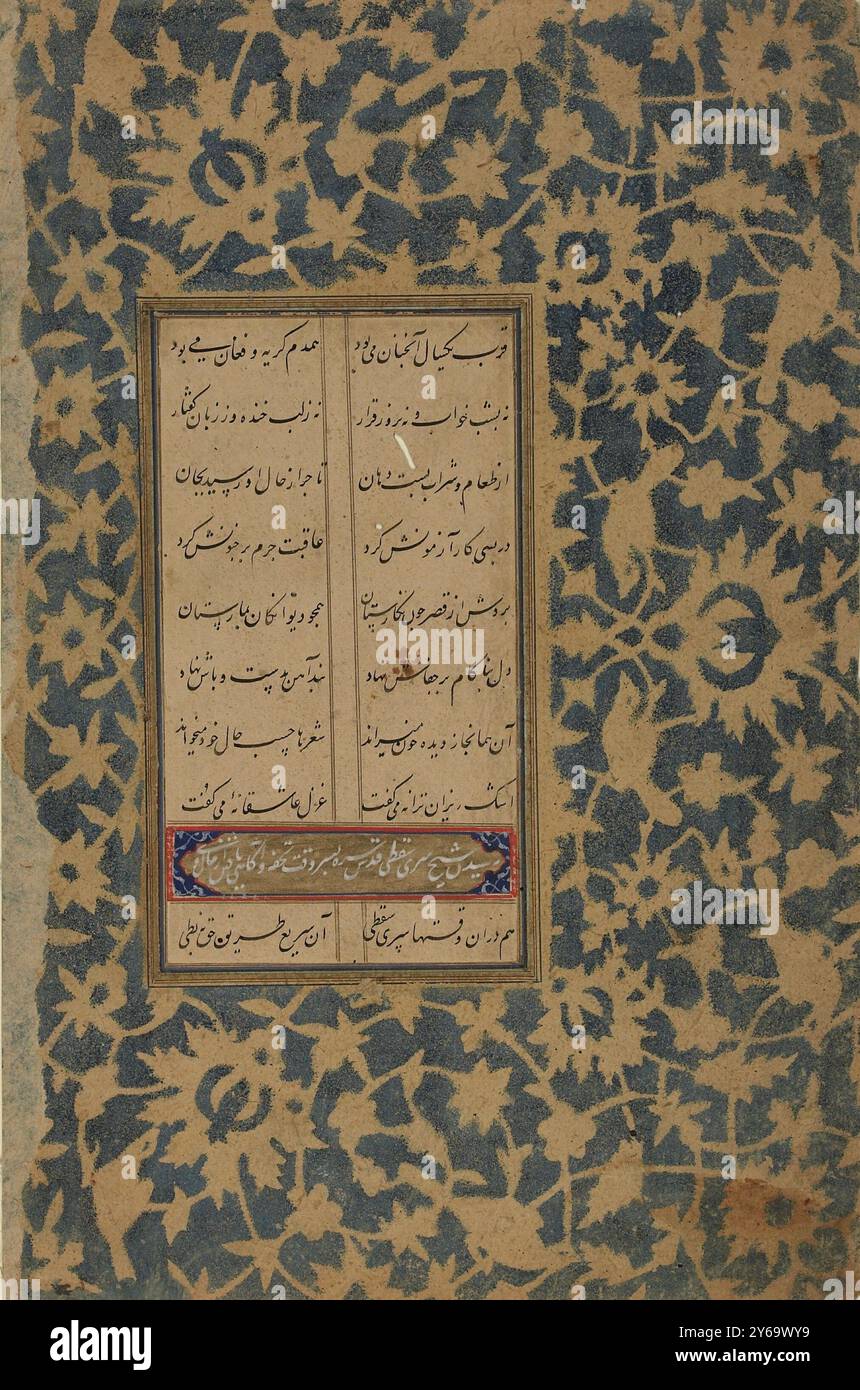 قرب یکسال آنچنان می بود همدم گریه و فغان می بود
نه بشب خواب و نه بروز قرار نه زلب خنده و ززبان گفتار
از طعام و شراب بست دهان تا جز از حال او رسید بجان
در بسی کار آزمونش کرد عاقبت جزم بر جنونش کرد
بردش از قصر خود همچو دیوانگان بیمارستان
دل بناکام بر جفاش نهاد بند آهن بدست و پاش نهاد
آن همانجا ز دیده خون میراند شعرها حسب حال خود میخواند
اشک ریزان ترانه می گفت غزل عاشقانه می گفت
رسیدن شیخ سری سقطی قدس سره بسر وقت تحفه و
هم دران وقتها سری سقطی آن سریع طریق
alamy
Image ID: 2Y69WY9
www.alamy.com